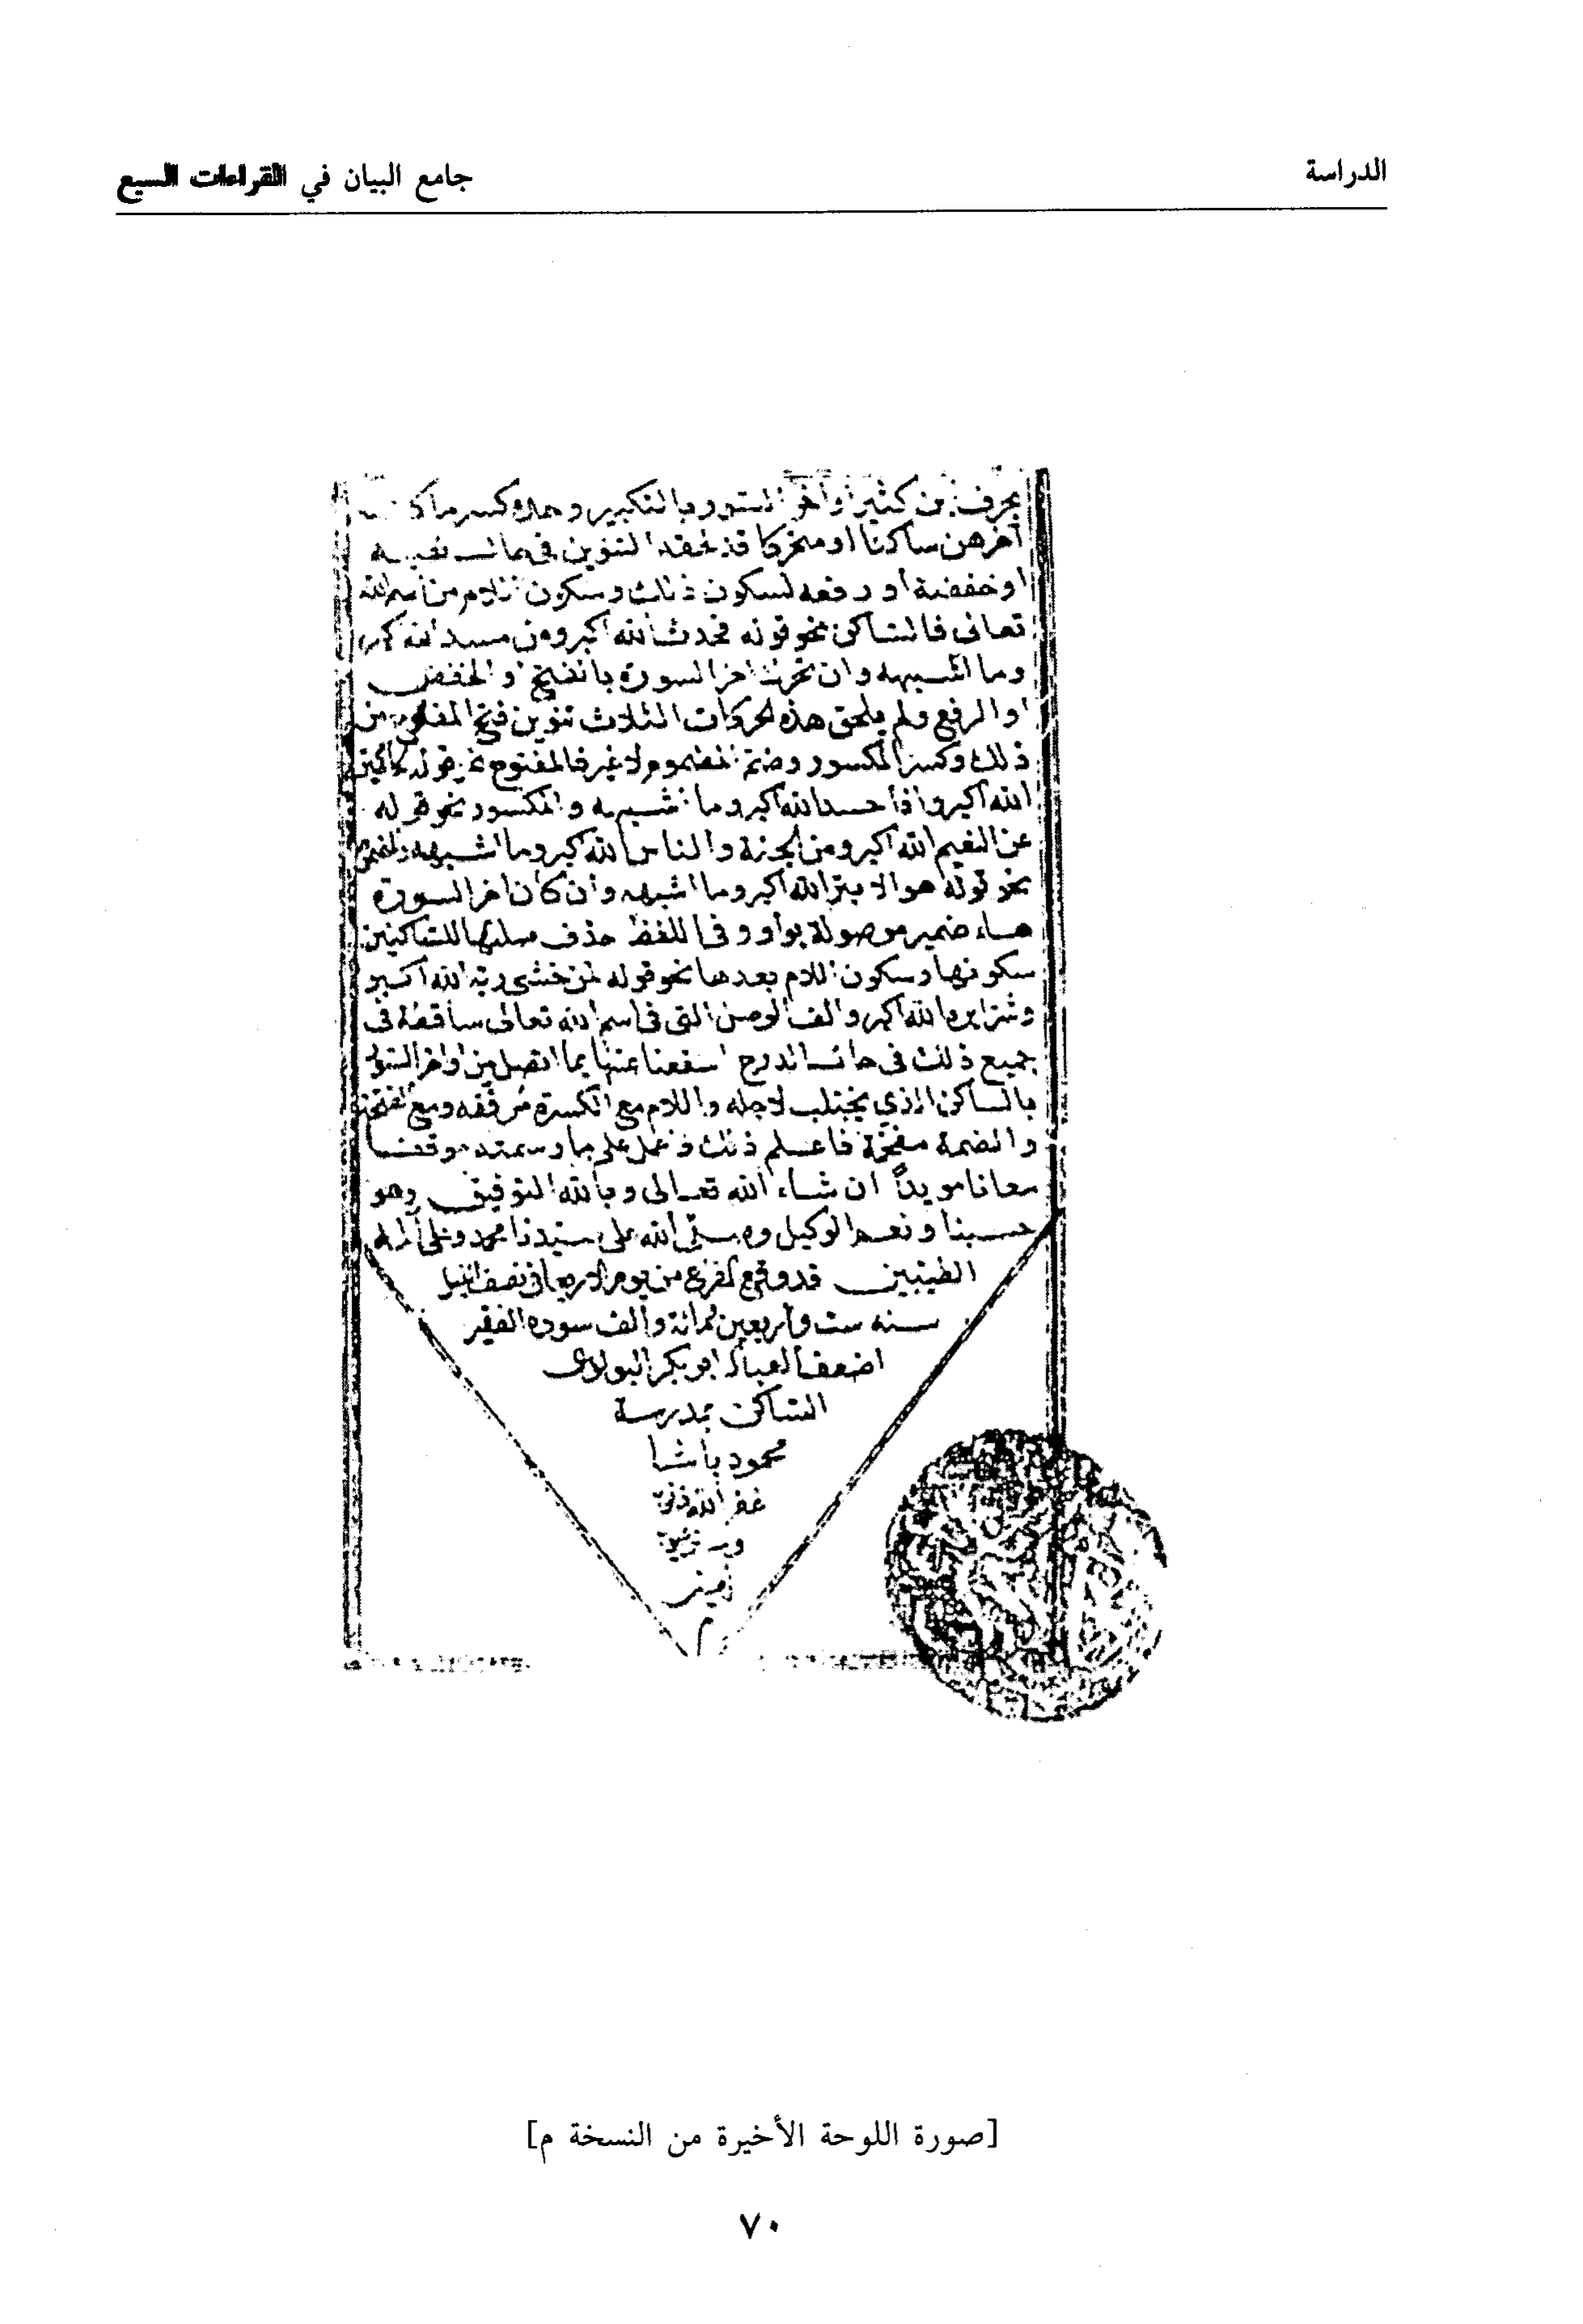 الدراسة
جامع البيان في القراءات السبع
آخرهن ساكنا او متحركا قد لحقه التنوين في حال نصبه
او خفضه أو رفعه لسكون ذلك وسكون اللام من اسم الله
تعالى فالساكن نحو قوله فحدث الله اكبر ومن مسد الله اكبر
وما اشبهه وان تحرك اخر السورة بالفتح او الخفض
او الرفع ولم يلحق هذه الحركات الثلاث تنوين فتح المفتوح من
ذلك وكسر المكسور وضم المضموم لا غير فالمفتوح نحو قوله الحاكمين
الله اكبر واذا حسد الله اكبر وما اشبهه والمكسور نحو قوله
عن النعيم الله اكبر ومن الجنة والناس الله اكبر وما اشبهه والمضموم
نحو قوله هو الابتر الله اكبر وما اشبهه وان كان اخر السورة
هاء ضمير موصولة بواو في اللفظ حذف صلتها للساكنين
سكونها وسكون اللام بعدها نحو قوله لمن خشى ربه الله اكبر
وشرا يره الله اكبر والف الوصل التى في اسم الله تعالى ساقطة في
جميع ذلك في حال الدرج استغنا عنها بما اتصل من اواخر السور
بالساكن الذي يجتلب لاجله واللام مع الكسرة مرققه ومع الفتحة
والضمة مفخمة فاعلم ذلك واعمل على ما رسمته موفقا
معانا مويدا ان شاء الله تعالى وبالله التوفيق وهو
حسبنا ونعم الوكيل وصلى الله على سيدنا محمد وعلى آله
الطيبين قد وقع الفراغ من يوم الاربعا في نصف الليل
سنه ست واربعين ومائة والف سوده الفقير
اضعف العباد ابو بكر
الساكن بمدرسة
محمود باشا
غفر الله ذنوبه
آمين
م
[صورة اللوحة الأخيرة من النسخة م]
٧٠